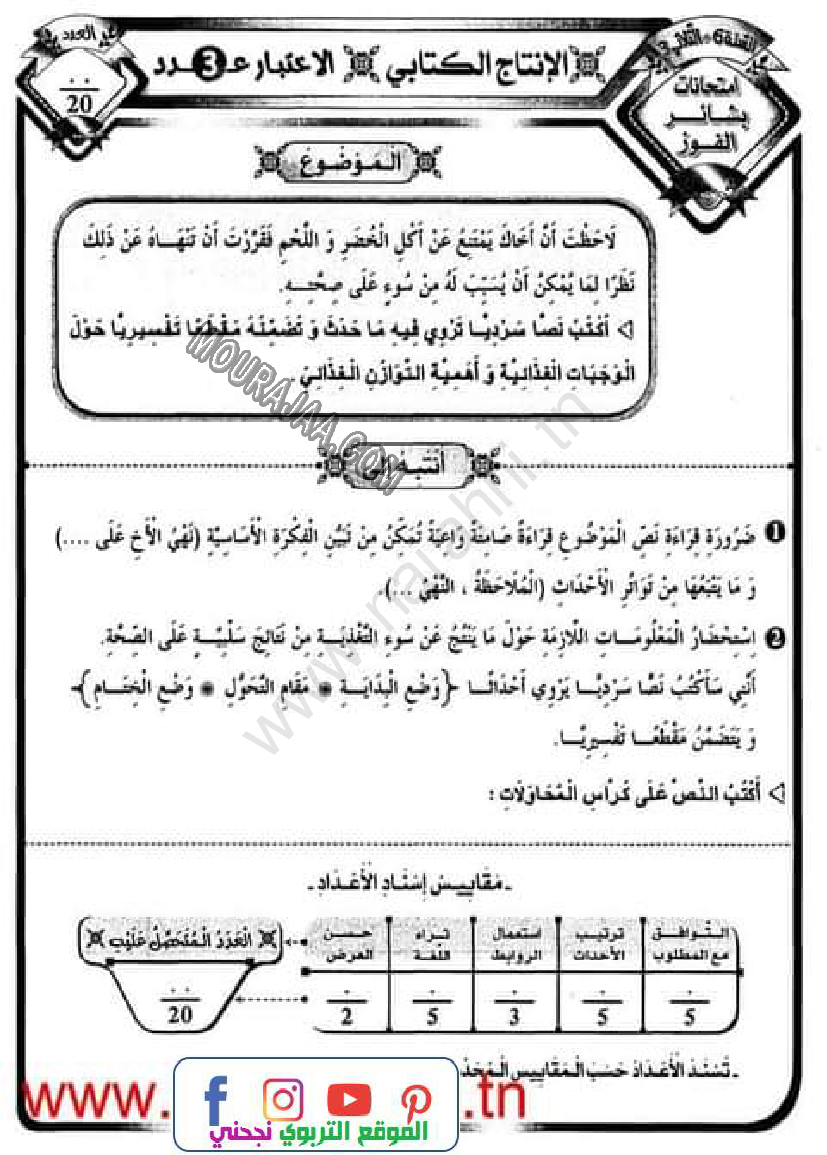 السّنة 6 - الثّلاثي 3
امتحانات
بشائر
الفوز
الإنتاج الكتابي
الاعتبار عـ3ـدد
العدد
20
اَلْمَوْضُوعُ
لَاحَظْتَ أَنَّ أَخَاكَ يَمْتَنِعُ عَنْ أَكْلِ الْخُضَرِ وَ اللَّحْمِ فَقَرَّرْتَ أَنْ تَنْهَـاهُ عَنْ ذَلِكَ
نَظَرًا لِمَا يُمْكِنُ أَنْ يُسَبِّبَ لَهُ مِنْ سُوءٍ عَلَى صِحَّتِـهِ.
أَكْتُبُ نَصًّا سَرْدِيًّا تَرْوِي فِيهِ مَا حَدَثَ وَ تُضَمِّنُهُ مَقْطَعًا تَفْسِيرِيًّا حَوْلَ
الْوَجَبَاتِ الْغِذَائِيَّةِ وَ أَهَمِّيَّةِ التَّوَازُنِ الْغِذَائِيِّ
أَنْتَبِهُ إِلَى
1 ضَرُورَةِ قِرَاءَةِ نَصِّ الْمَوْضُوعِ قِرَاءَةً صَامِتَةً وَاعِيَةً تُمَكِّنُ مِنْ تَبَيُّنِ الْفِكْرَةِ الْأَسَاسِيَّةِ (نَهْيُ الْأَخِ عَلَى ....)
وَ مَا يَتْبَعُهَا مِنْ تَوَاتُرِ الْأَحْدَاثِ (الْمُلَاحَظَةُ ، النَّهْيُ ...).
2 اِسْتِحْضَارُ الْمَعْلُومَـاتِ اللَّازِمَةِ حَوْلَ مَا يَنْتُجُ عَنْ سُوءِ التَّغْذِيَـةِ مِنْ نَتَائِجَ سَلْبِيَّـةٍ عَلَى الصِّحَّةِ.
أَنَّنِي سَأَكْتُبُ نَصًّا سَرْدِيًّـا يَرْوِي أَحْدَاثًـا {وَضْعِ الْبِدَايَـةِ * مَقَامِ التَّحَوُّلِ * وَضْعِ الْخِتَـامِ}
وَ يَتَضَمَّنُ مَقْطَعًـا تَفْسِيرِيًّـا.
أَكْتُبُ النَّصَّ عَلَى كُرَّاسِ الْمُحَاوَلَاتِ :
- مَقَايِيسُ إِسْنَادِ الْأَعْدَادِ -
التّوافق مع المطلوب
ترتيب الأحداث
استعمال الروابط
ثراء اللّغة
حسن العرض
الْعَدَدُ الْمُتَحَصَّلُ عَلَيْهِ
5
5
3
5
2
20
- تُسْنَدُ الْأَعْدَادُ حَسَبَ الْمَقَايِيسِ
www.
.tn
الموقع التربوي نجحني
MOURAJAA.COM
www.najahni.tn